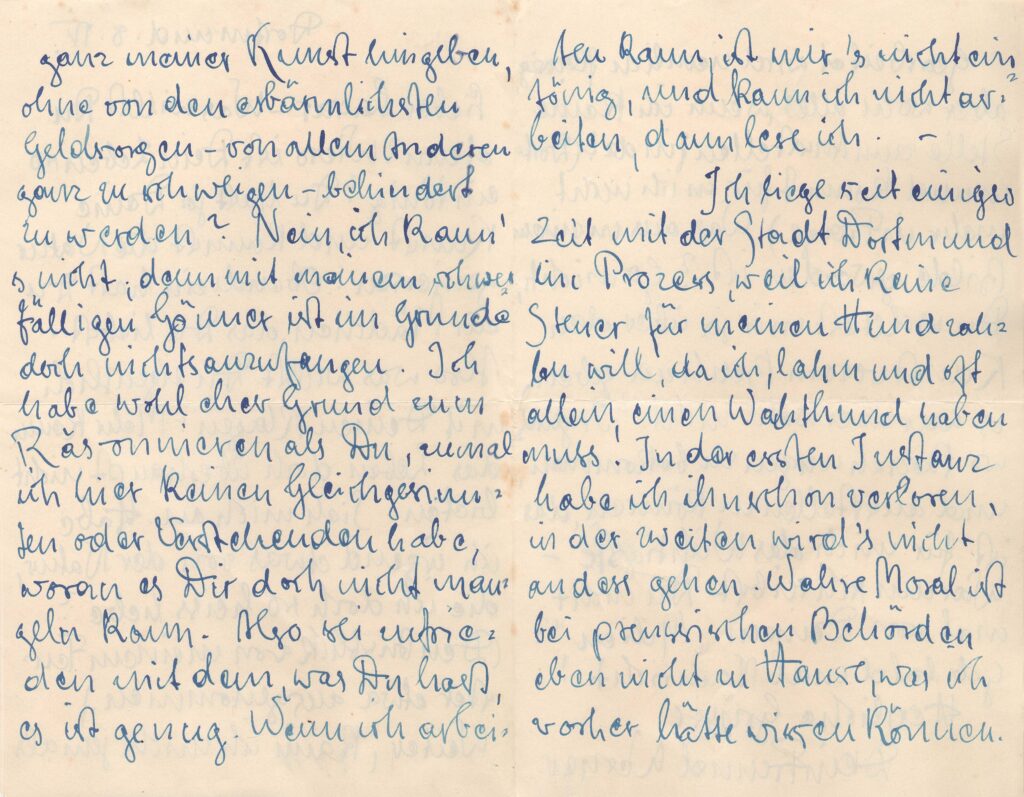 ganz meiner Kunst hingeben,
ohne von den erbärmlichsten
Geldsorgen – von allem Anderen
ganz zu schweigen – behindert
zu werden? Nein, ich kann'
s nicht, denn mit meinem schwer-
fälligen Gönner ist im Grunde
doch nichts anzufangen. Ich
habe wohl eher Grund zum
Räsonnieren als Du, zumal
ich hier keinen Gleichgesinn-
ten oder Verstehenden habe,
woran es Dir doch nicht man-
geln kann. Also sei zufrie-
den mit dem, was Du hast,
es ist genug. Wenn ich arbei-
ten kann, ist mir's nicht ein-
tönig, und kann ich nicht ar-
beiten, dann lese ich. –
Ich liege seit einiger
Zeit mit der Stadt Dortmund
im Prozess, weil ich keine
Steuer für meinen Hund zah-
len will, da ich, lahm und oft
allein, einen Wachthund haben
muss. In der ersten Instanz
habe ich ihn schon verloren,
in der zweiten wird's nicht
anders gehen. Wahre Moral ist
bei preussischen Behörden
eben nicht zu Hause, was ich
vorher hätte wissen können.